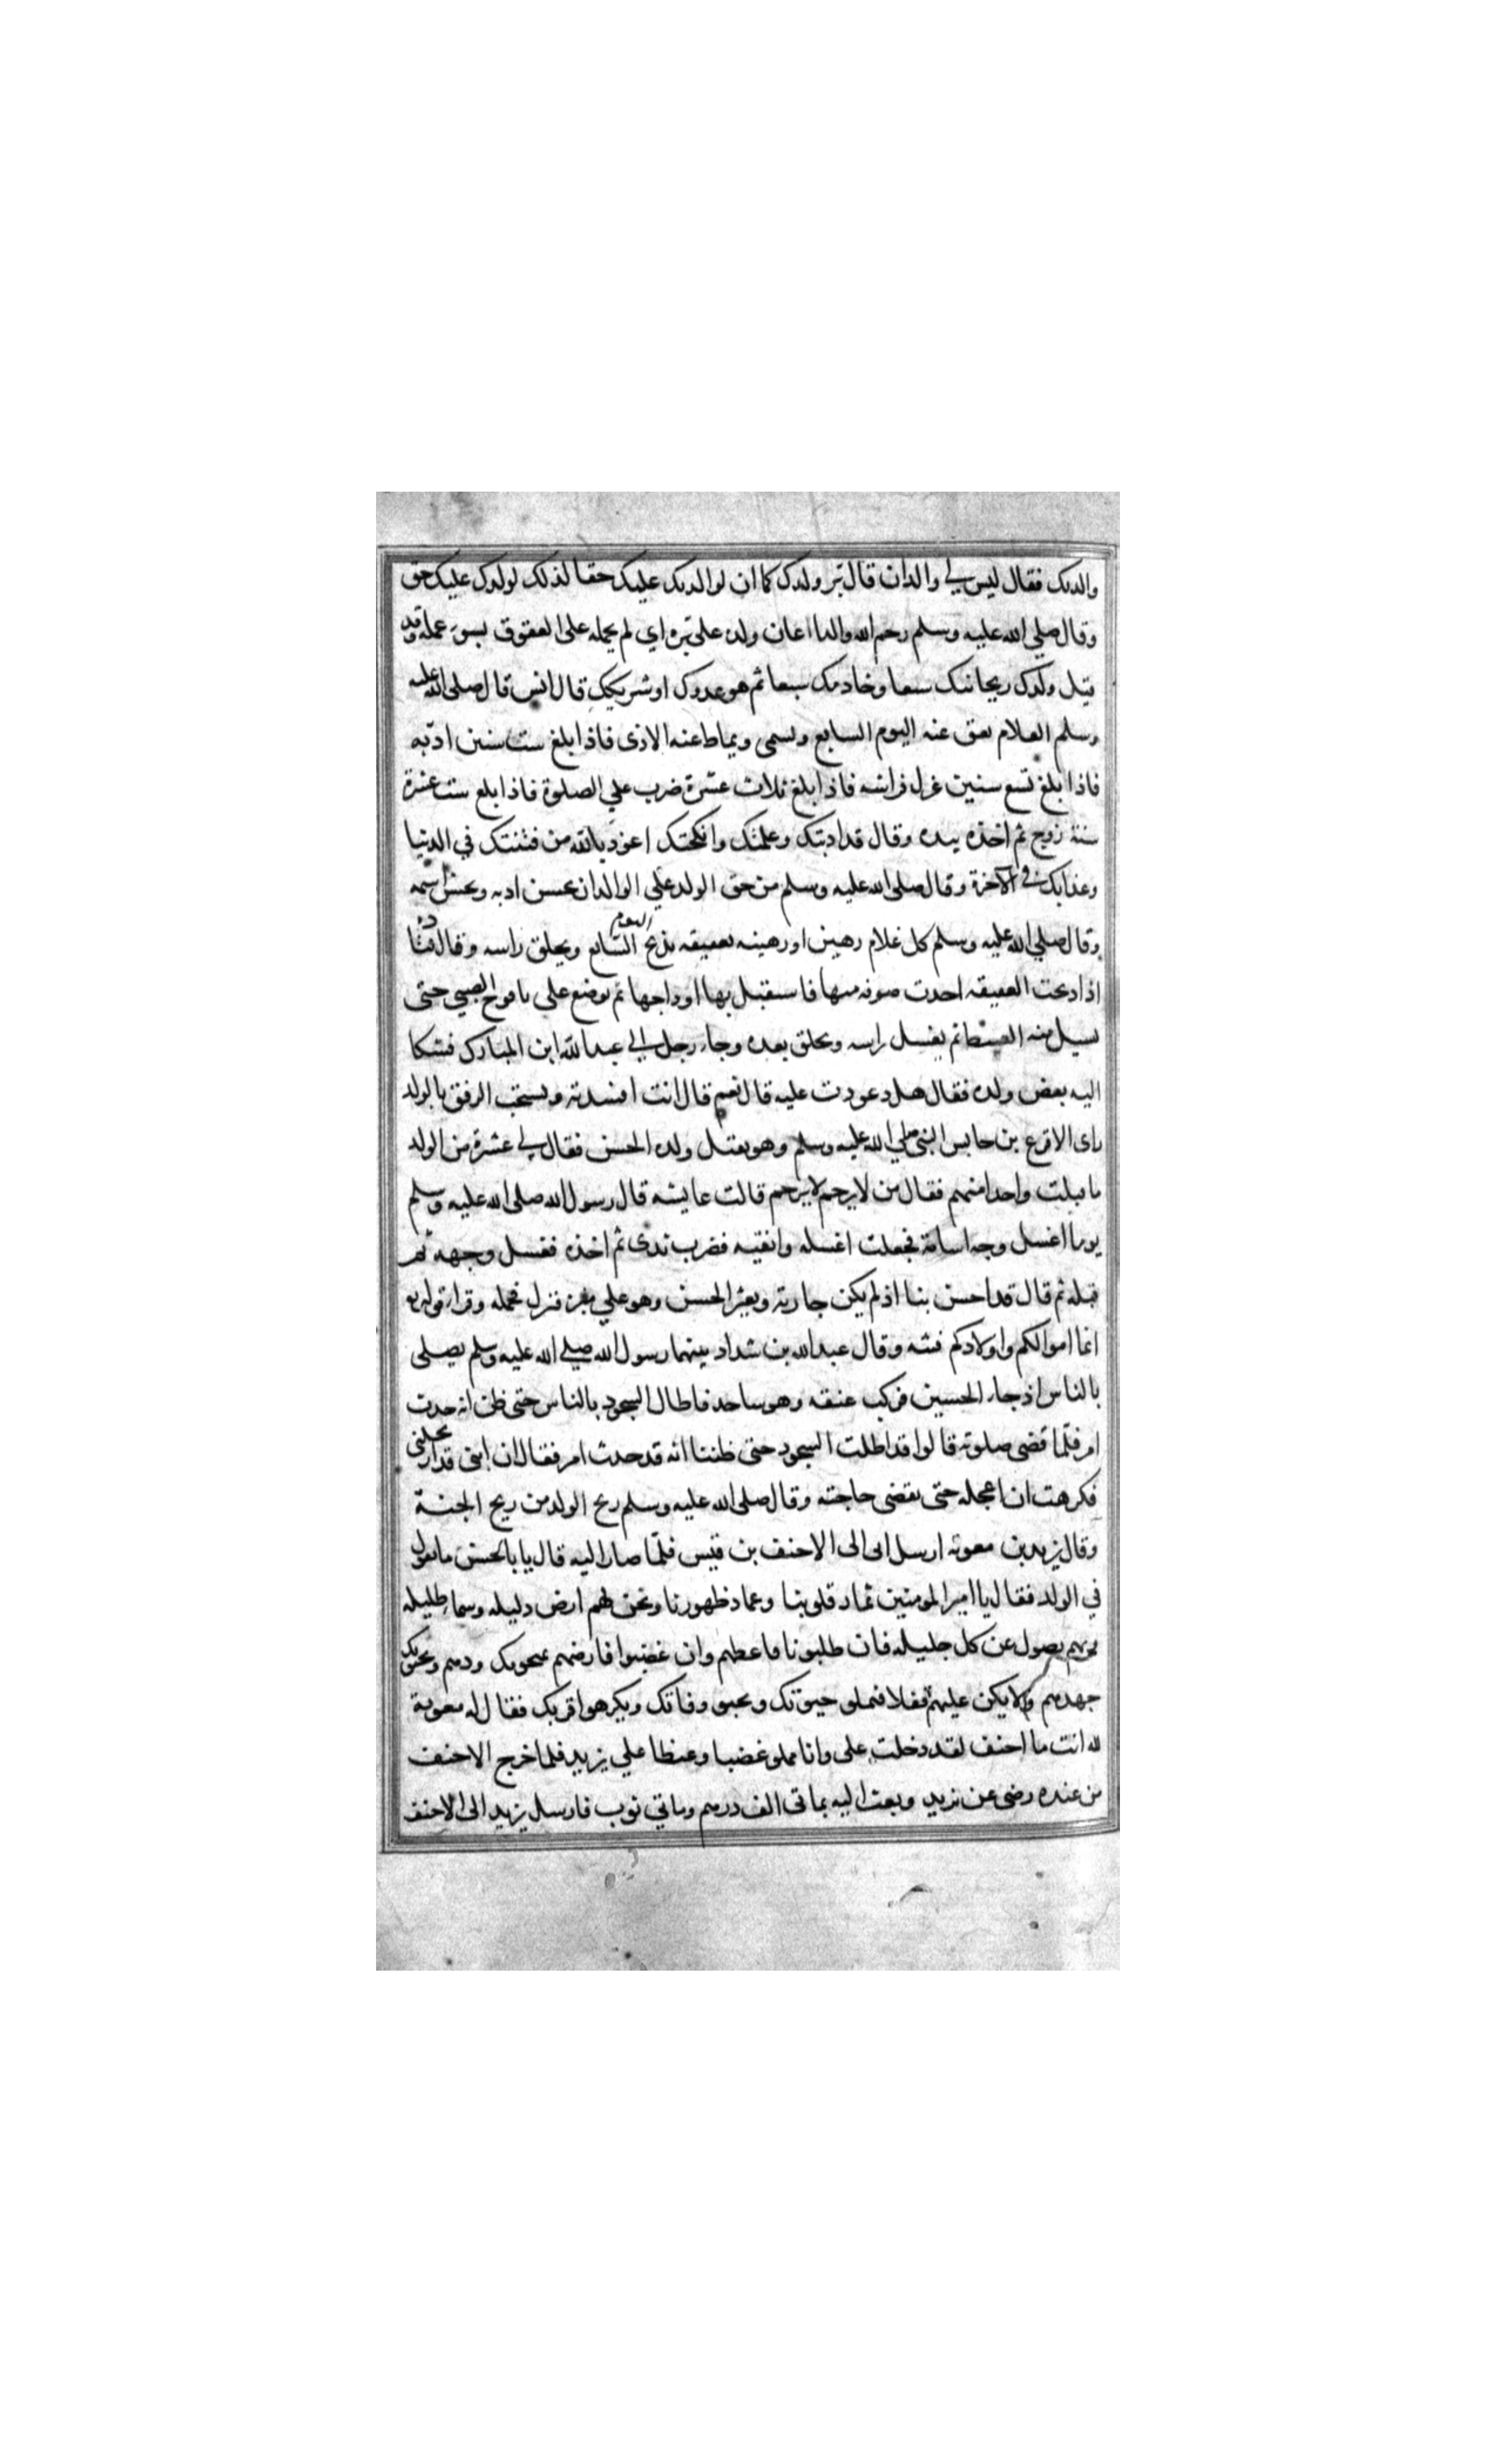 والديك فقال ليس لي والدان قال بر ولدك كما ان لوالديك عليك حقا لذلك لولدك عليك حق
وقال صلي الله عليه وسلم رحم الله والدا اعان ولده على بره اي لم يحمله على العقوق بسوء عمله وقد
قيل ولدك ريحانتك سبعا وخادمك سبعا ثم هو عدوك او شريكك قال انس قال صلى الله عليه
وسلم الغلام يعق عنه اليوم السابع ويسمى ويماط عنه الاذى فاذا بلغ ست سنين ادبه
فاذا بلغ تسع سنين عزل فراشه فاذا بلغ ثلاث عشرة ضرب علي الصلوة فاذا بلغ ست عشرة
سنة زوج ثم اخذه بيده وقال قد ادبتك وعلمتك وانكحتك اعوذ بالله من فتنتك في الدنيا
وعذابك في الآخرة وقال صلى الله عليه وسلم من حق الولد علي الوالد ان يحسن ادبه ويحسن اسمه
وقال صلي الله عليه وسلم كل غلام رهين او رهينه بعقيقه يذبح اليوم السابع ويحلق راسه وقال قتادة
اذا ذبحت العقيقه اخذت صوفه منها فاستقبل بها اوداجها ثم توضع على يافوخ الصبي حتى
يسيل منه ثم يغسل راسه ويحلق بعده وجاء رجل الي عبد الله ابن المبارك فشكا
اليه بعض ولده فقال هل دعوت عليه قال نعم قال انت افسدته ويستحب الرفق بالولد
راى الاقرع بن حابس النبي صلي الله عليه وسلم وهو يقبل ولده الحسن فقال لي عشرة من الولد
ما قبلت واحدا منهم فقال من لا يرحم لا يرحم قالت عايشه قال رسول الله صلى الله عليه وسلم
يوما اغسل وجه اسامة فجعلت اغسله وانقيه فضرب يدى ثم اخذه فغسل وجهه ثم
قبله ثم قال قد احسن بنا اذ لم يكن جارية وبعثر الحسن وهو علي منبره فنزل فحمله وقرا قوله تع
انما اموالكم واولادكم فتنه وقال عبد الله بن شداد بينما رسول الله صلى الله عليه وسلم يصلي
بالناس اذ جاء الحسين فركب عنقه وهو ساجد فاطال السجود بالناس حتى ظن انه حدث
امر فلما قضى صلوته قالوا قد اطلت السجود حتى ظننا انه قد حدث امر فقال ان ابني قد ارتحلني
فكرهت ان اعجله حتى يقضى حاجته وقال صلى الله عليه وسلم ريح الولد من ريح الجنة
وقال يزيد بن معوية ارسل ابى الى الاحنف بن قيس فلما صار اليه قال يابا الحسن ما تقول
في الولد فقال يا امير المومنين ثمار قلوبنا وعماد ظهورنا ونحن لهم ارض ذليله وسماء ظليله
وبهم يصول عن كل جليله فان طلبونا فاعطهم وان غضبوا فارضهم يمحوك ودهم ويحبوك
جهدهم ولا يكن عليهم قفلا فيملو حيوتك ويحبو وفاتك ويكرهوا قربك فقال له معوية
لله انت يا احنف لقد دخلت على وانا مملو غضبا وغيظا علي يزيد فلما خرج الاحنف
من عنده رضى عن يزيد وبعث اليه بماتى الف درهم وماتي ثوب فارسل يزيد الى الاحنف